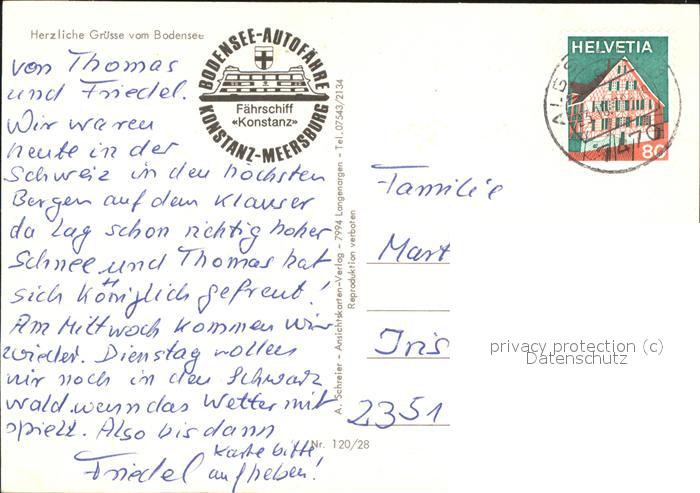 Herzliche Grüsse vom Bodensee
von Thomas
und Friedel.
Wir waren
heute in der
Schweiz in den höchsten
Bergen auf dem Klausen
da lag schon richtig hoher
Schnee und Thomas hat
sich königlich gefreut!
Am Mittwoch kommen wir
wieder. Dienstag wollen
wir noch in den Schwarz
wald. wenn das Wetter mit
spielt. Also bis dann
Friedel
Karte bitte
aufheben!
BODENSEE-AUTOFÄHRE
Fährschiff
«Konstanz»
KONSTANZ-MEERSBURG
A. Schreier - Ansichtskarten-Verlag - 7994 Langenargen - Tel. 07543/2134
Reproduktion verboten
Nr. 120/28
HELVETIA
80
Familie
Mart
Iris
2351
privacy protection (c)
Datenschutz